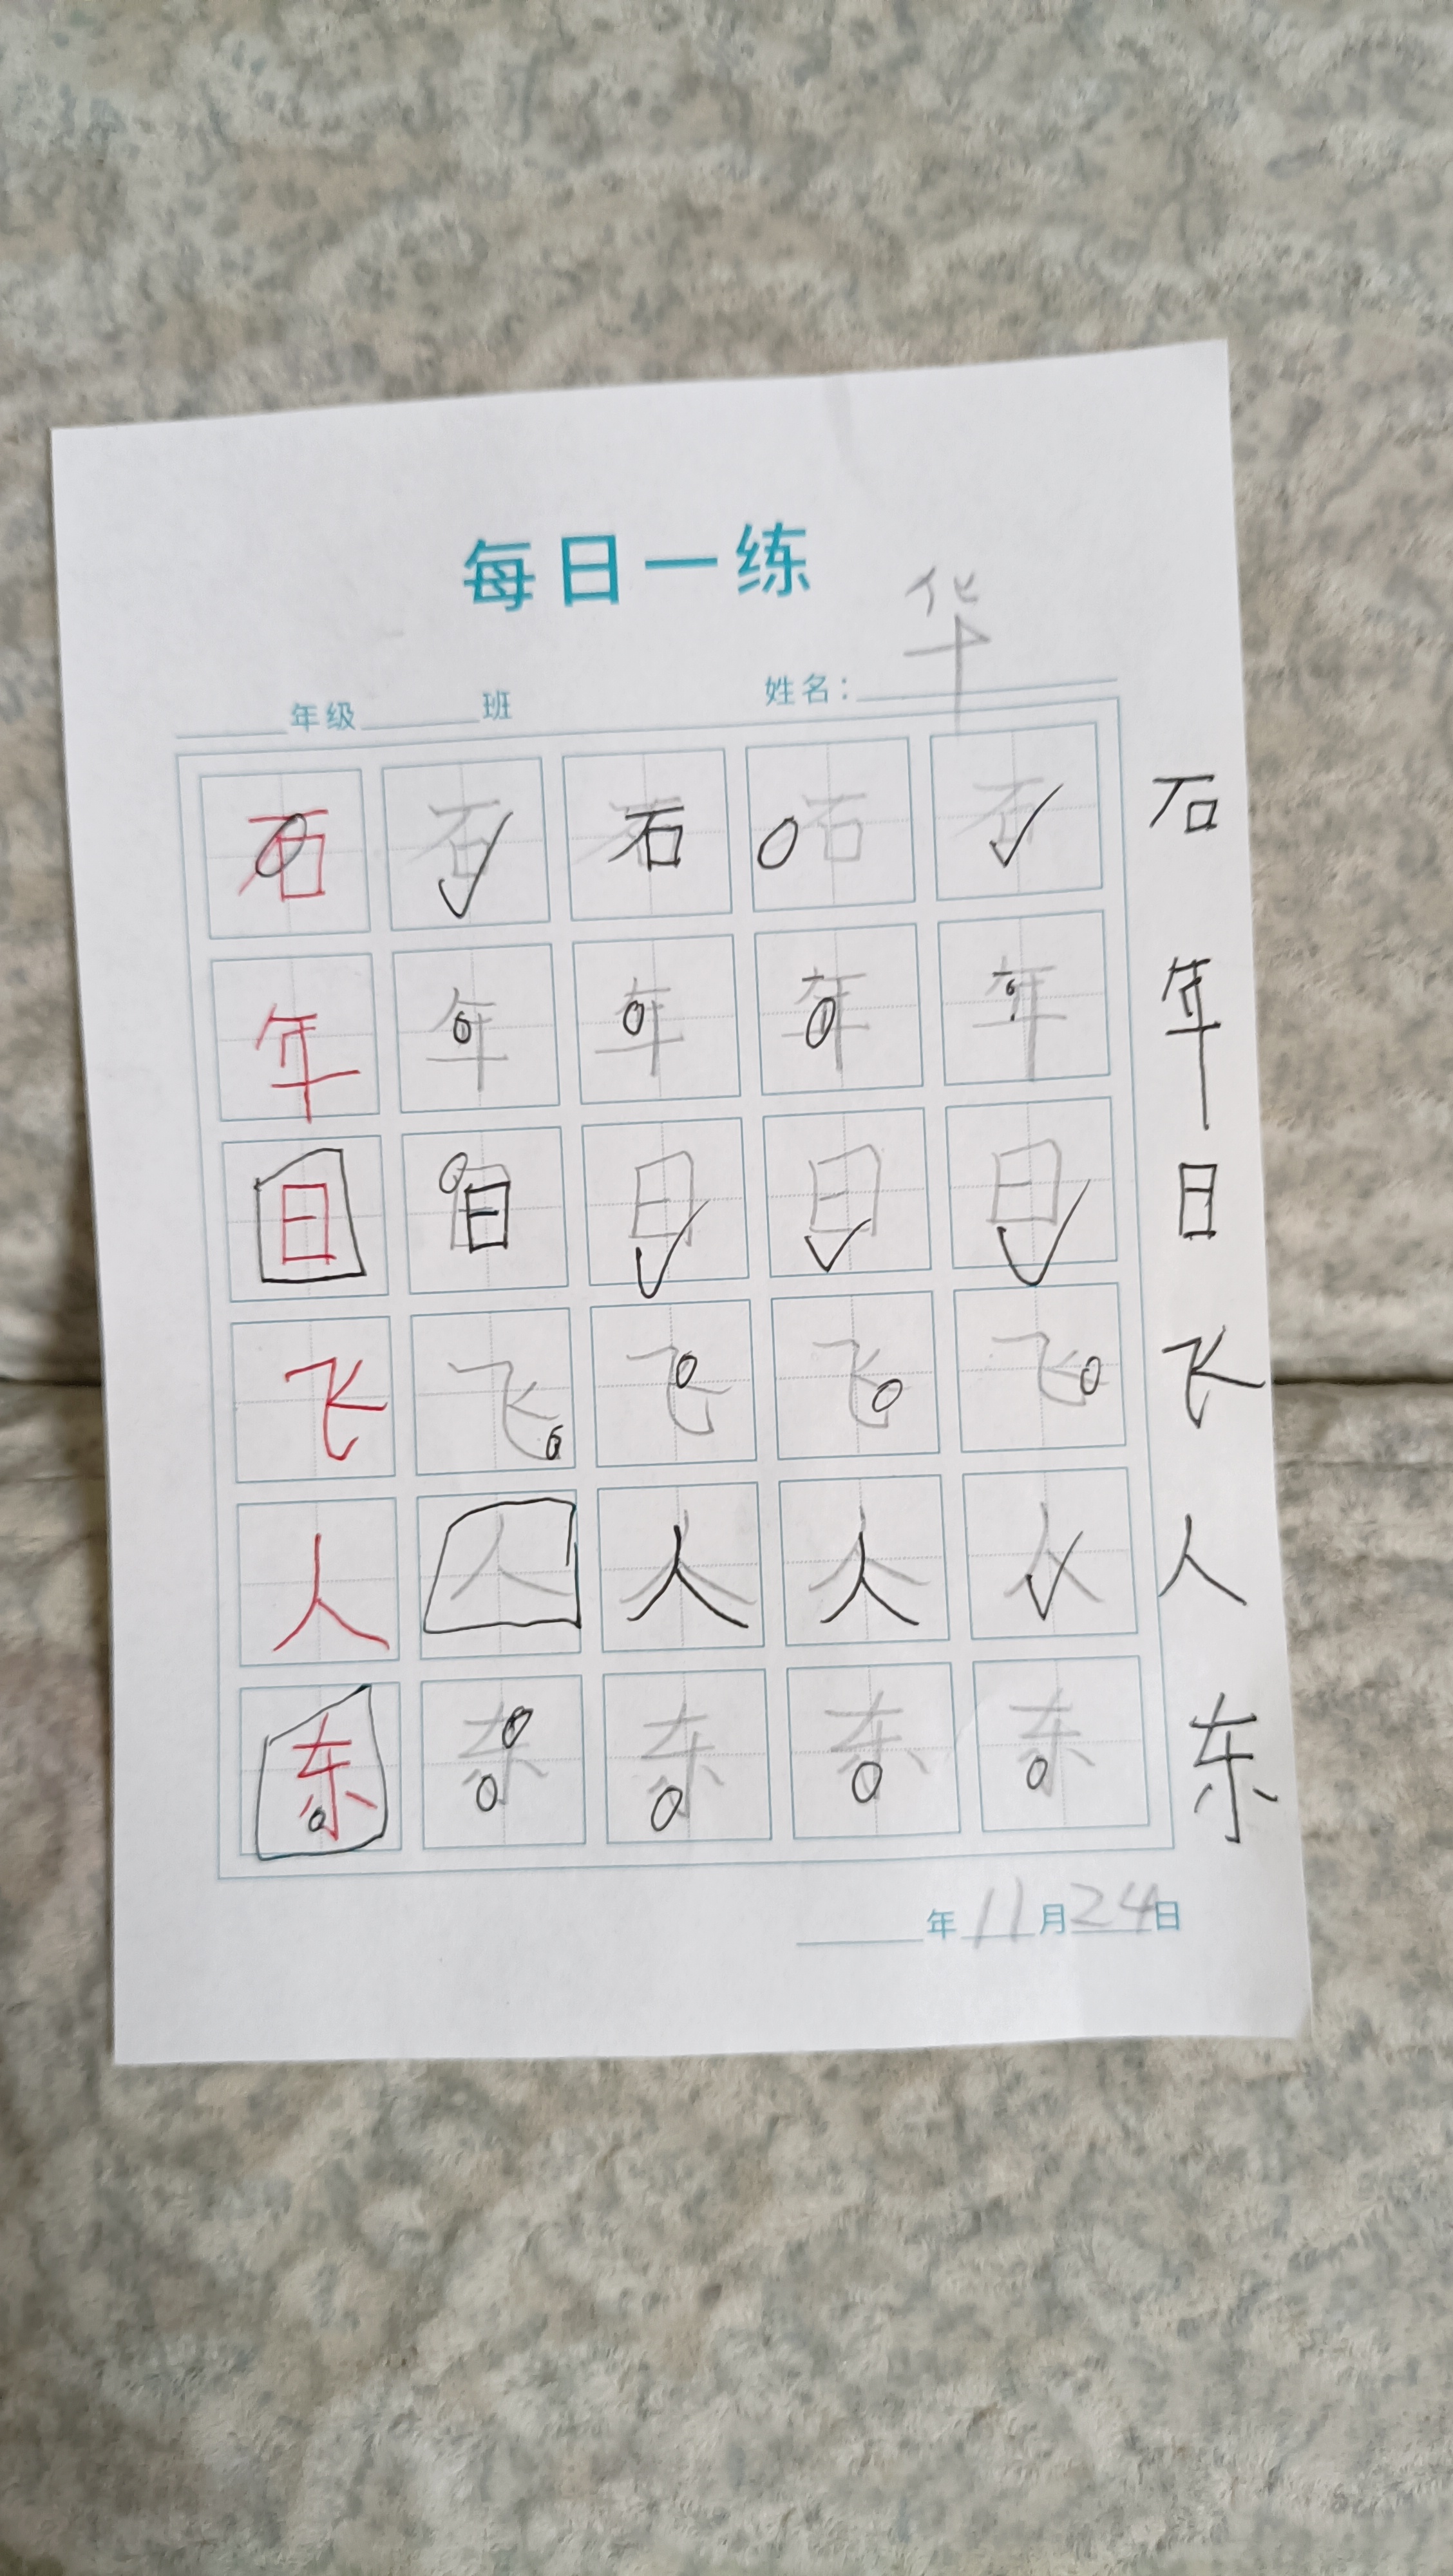 每日一练
华
年级 班 姓名：
石 石 石 石 石 石
年 年 年 年 年 年
日 日 日 日 日 日
飞 飞 飞 飞 飞 飞
人 人 人 人 人 人
东 东 东 东 东 东
年11月24日